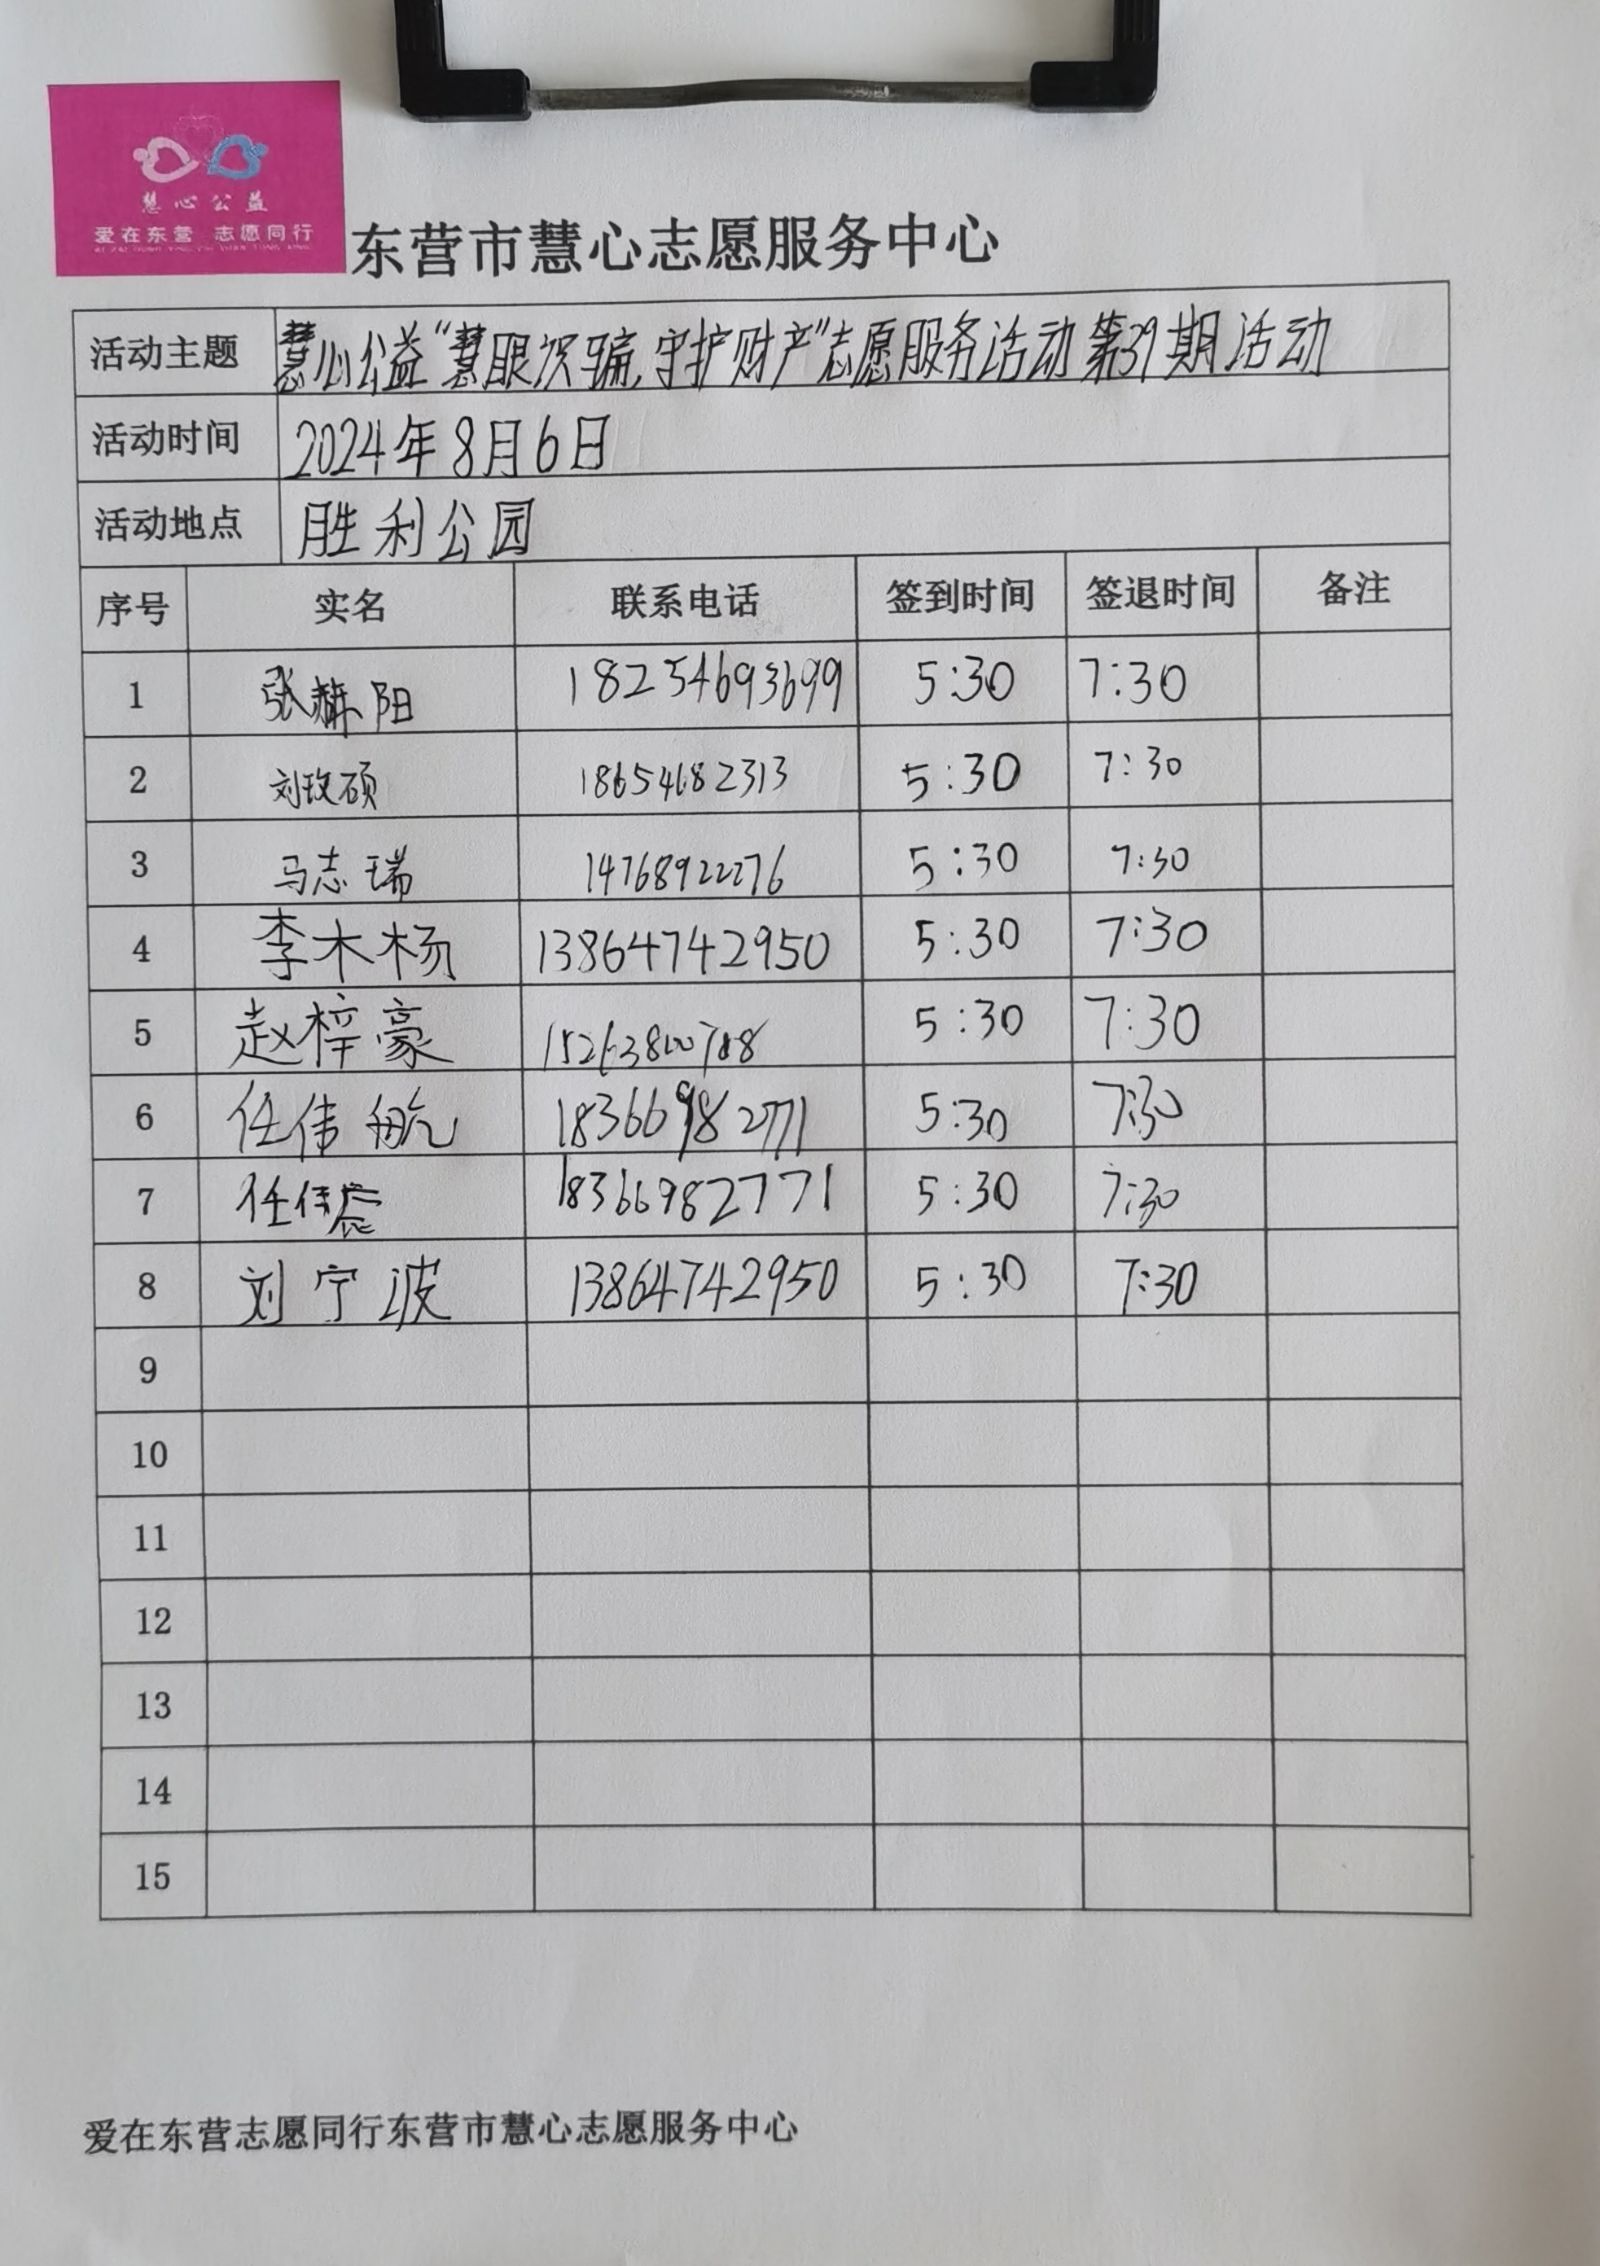 慧心公益
爱在东营 志愿同行
东营市慧心志愿服务中心
活动主题 慧心公益“慧眼识骗,守护财产”志愿服务活动第39期活动
活动时间 2024年8月6日
活动地点 胜利公园
序号 实名 联系电话 签到时间 签退时间 备注
1 张赫阳 18254693699 5:30 7:30
2 刘玫硕 18654682313 5:30 7:30
3 马志瑞 14768922276 5:30 7:30
4 李木杨 13864742950 5:30 7:30
5 赵梓豪 5:30 7:30
6 任伟航 18366982771 5:30 7:30
7 任伟 18366982771 5:30 7:30
8 刘宁波 13864742950 5:30 7:30
9
10
11
12
13
14
15
爱在东营志愿同行东营市慧心志愿服务中心